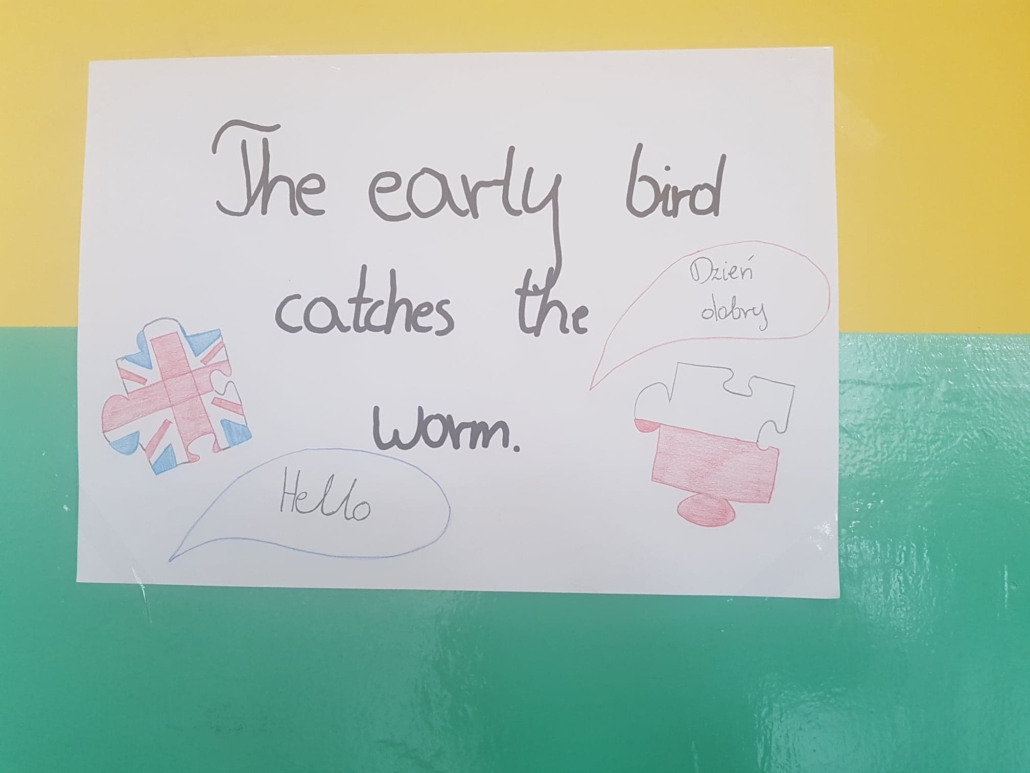 The early bird
catches the
worm.
Dzień
dobry
Hello